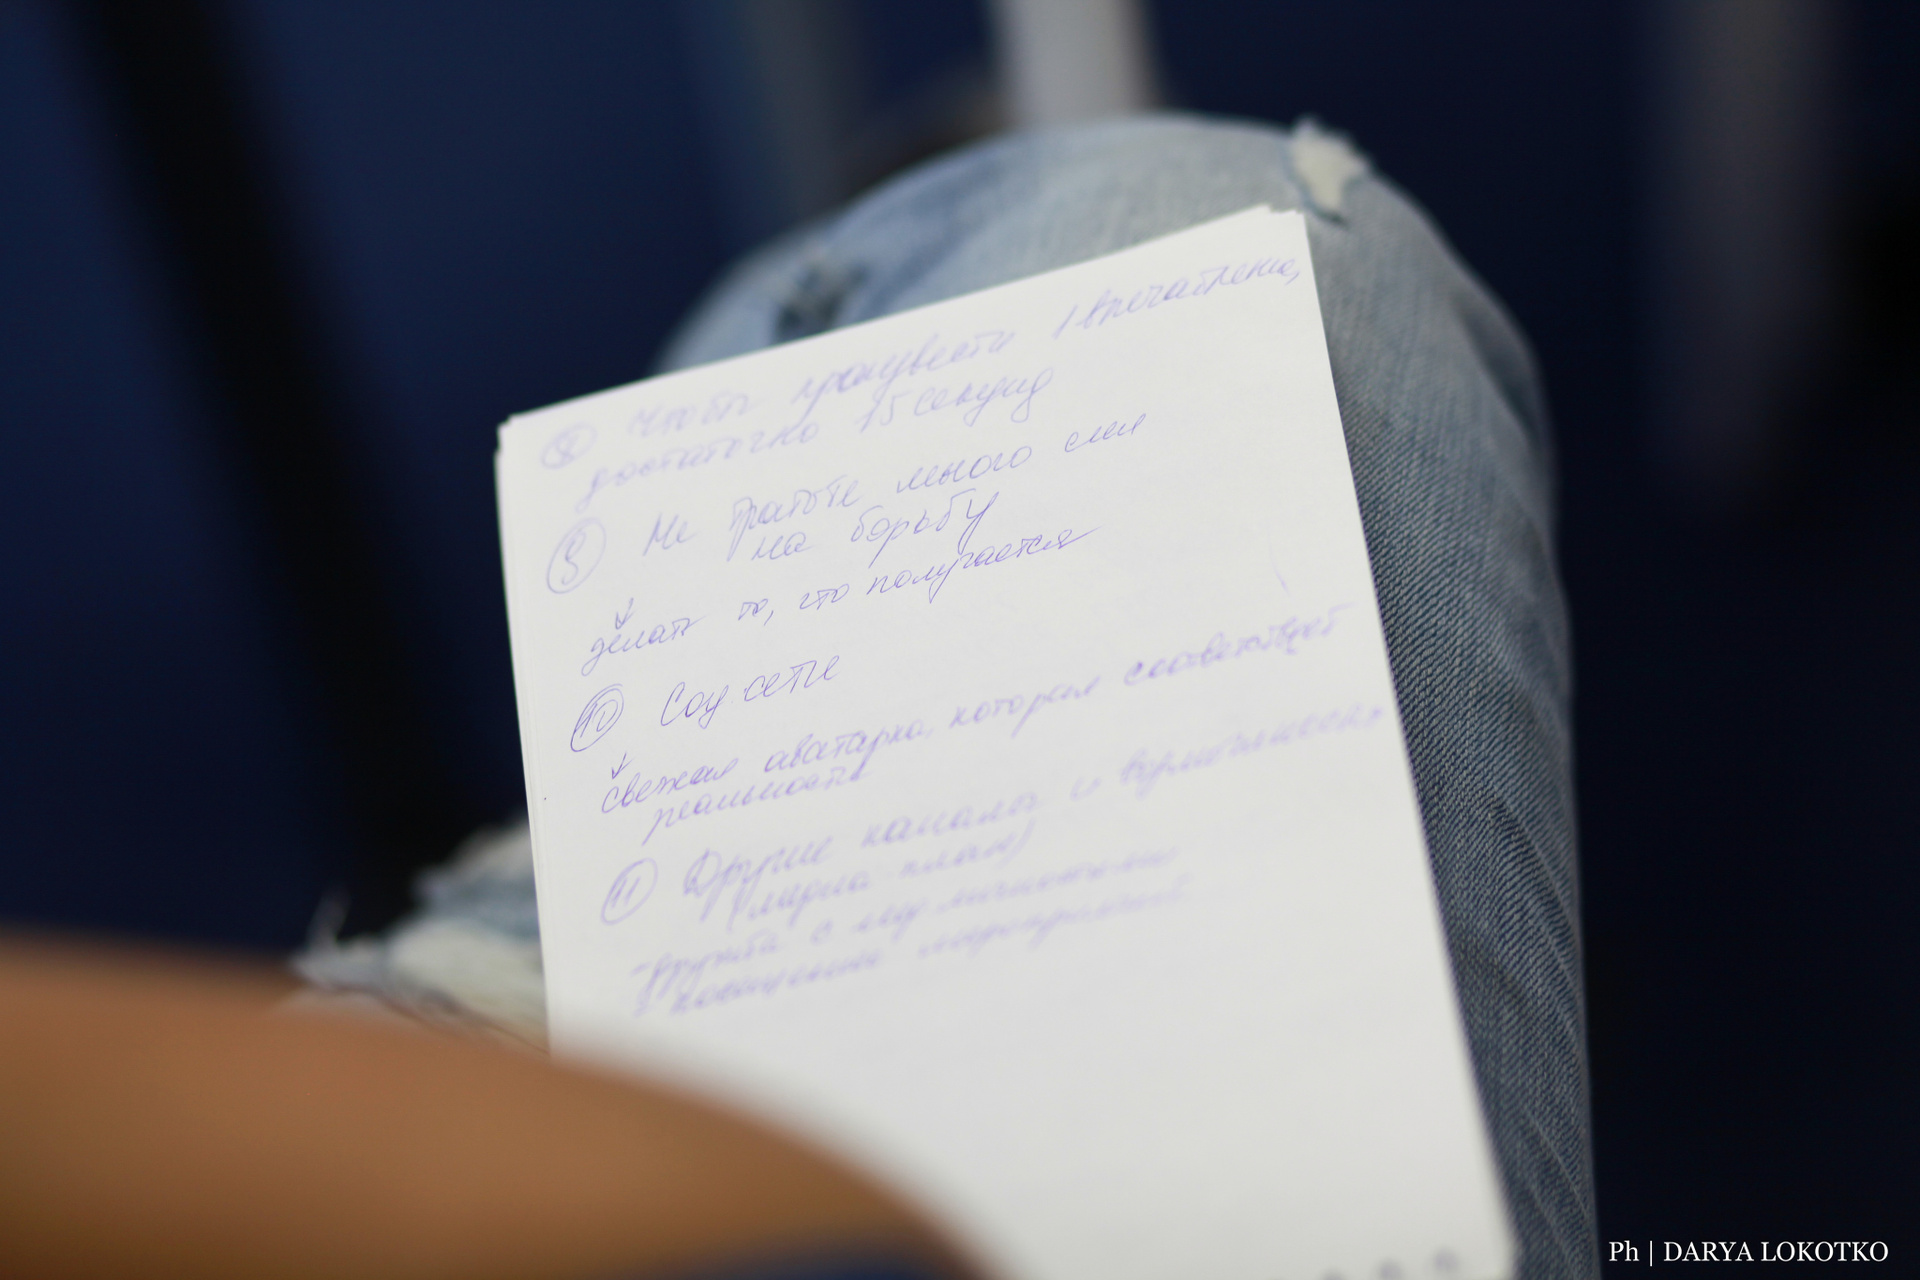 ⑧ Чтобы произвести 1 впечатление,
достаточно 15 секунд
⑨ Не тратьте много сил
на борьбу
↓
делать то, что получается
⑩ Соц. сети
↓
свежая аватарка, которая соответствует
реальности
⑪ Другие каналы и
(медиа-план)
- дружба с
- посещение мероприятий
Ph | DARYA LOKOTKO